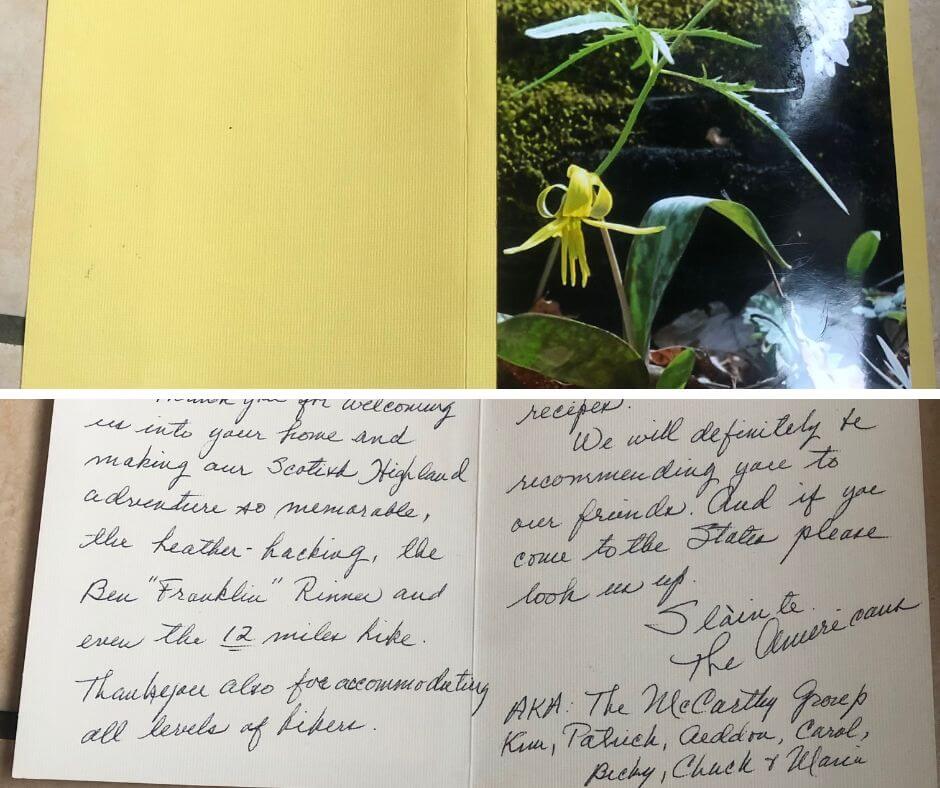 Thank you for welcoming
us into your home and
making our Scotish Highland
adventure so memorable,
the heather-hacking, the
Ben "Franklin" Rinnes and
even the 12 miles hike.
Thankyou also for accommodating
all levels of hikers.
recipes.
We will definitely be
recommending you to
our friends. And if you
come to the States please
look us up.
Slàinte.
The Americans
AKA: The McCarthy Group
Patrick, Aeddon, Carol,
Becky, Chuck + Maria